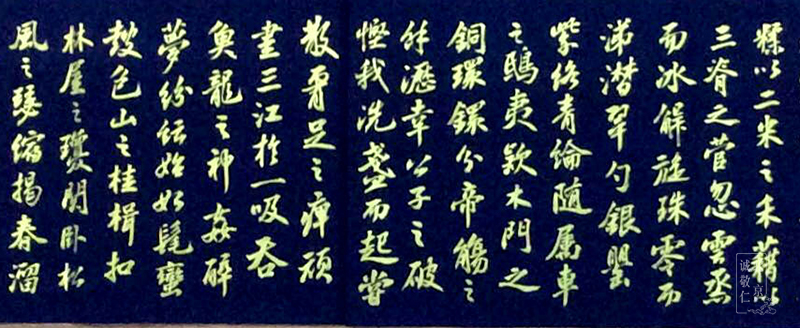 糅以二米之禾藉以
三脊之菅忽雲烝
而冰解旋珠零而
涕潸翠勺銀罌
紫絡青綸隨属車
之鴟夷款木門之
銅環鐶分帝觴之
餘瀝幸公子之破
慳我洗盞而起嘗
散腰足之痺頑
盡三江於一吸吞
魚龍之神姦醉
夢紛紜始如髦蠻
鼓包山之桂楫扣
林屋之瓊關卧松
風之瑟縮揭春溜
誠敬仁